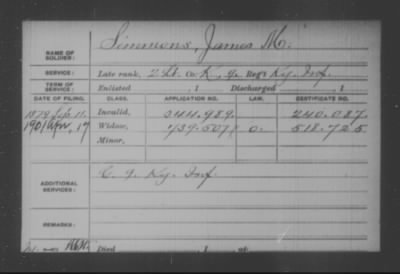 NAME OF SOLDIER: Simmons, James M.
SERVICE: Late rank, 2 Lt. Co. K, 9. Reg't Ky. Inf.
TERM OF SERVICE: Enlisted , 1 Discharged , 1
DATE OF FILING. CLASS. APPLICATION NO. LAW. CERTIFICATE NO.
1879 Invalid, 344.989. 240.087.
1901 Apr. 17 Widow, 739.507 518.725
Minor,
ADDITIONAL SERVICES: C. 9. Ky. Inf.
REMARKS:
Died , 1 , at